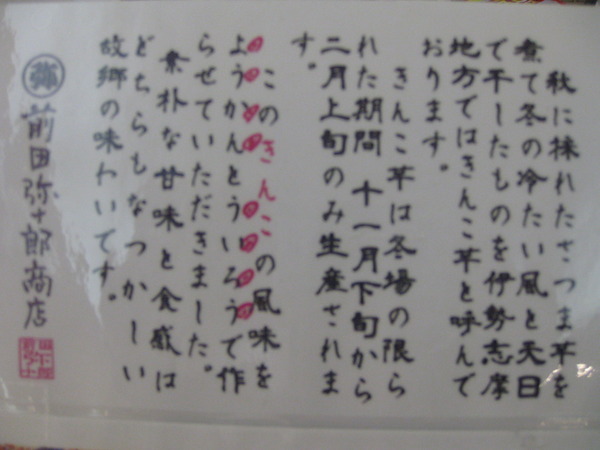 秋に採れたさつま芋を
煮て冬の冷たい風と天日
で干したものを伊勢志摩
地方ではきんこ芋と呼んで
おります。
きんこ芋は冬場の限ら
れた期間 十一月下旬から
二月上旬のみ生産されま
す。
このきんこの風味を
ようかんとういろうで作
らせていただきました。
素朴な甘味と食感は
どちらもなつかしい
故郷の味わいです。
弥 前田弥十郎商店